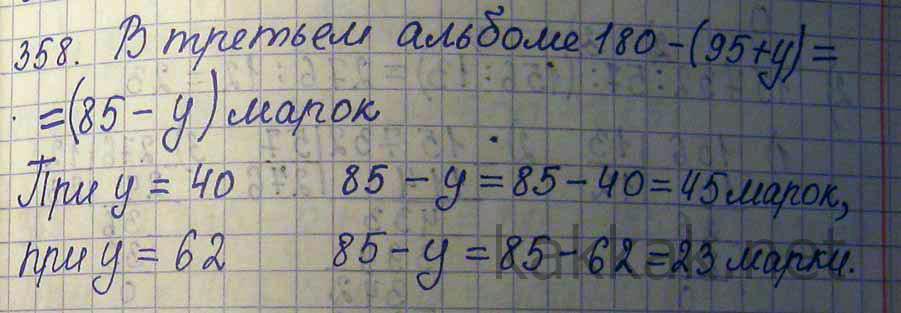 358. В третьем альбоме 180-(95+y)=
=(85-y) марок
При y=40 85-y=85-40=45 марок,
при y=62 85-y=85-62=23 марки.